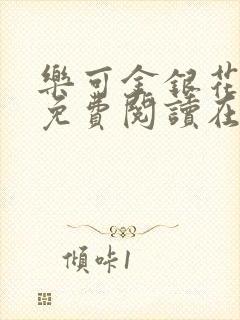 樂可金銀花
免費閱讀在
傾咔1